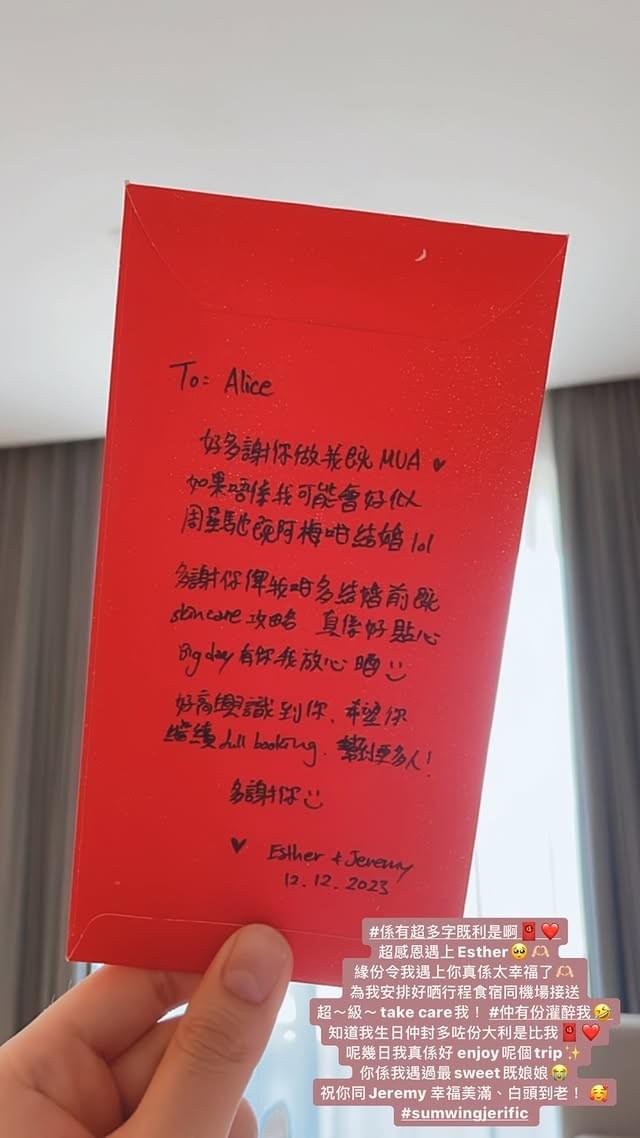 To: Alice
好多謝你做我既 MUA ♥
如果唔係我可能會好似
周星馳既阿梅咁結婚 lol
多謝你俾我咁多結婚前既
skincare 攻略 真係好貼心
Big day 有你我放心晒 :)
好高興識到你、希望你
繼續 full booking、幫到更多人!
多謝你 :)
♥ Esther & Jeremy
12.12.2023
#係有超多字既利是啊🧧❤️
超感恩遇上 Esther🥺🫶🏻
緣份令我遇上你真係太幸福了🫶🏻
為我安排好哂行程食宿同機場接送
超～級～ take care 我！ #仲有份灌醉我🤣
知道我生日仲封多咗份大利是比我🧧❤️
呢幾日我真係好 enjoy 呢個 trip✨
你係我遇過最 sweet 既娘娘😭
祝你同 Jeremy 幸福美滿、白頭到老！ 🥰
#sumwingjerific